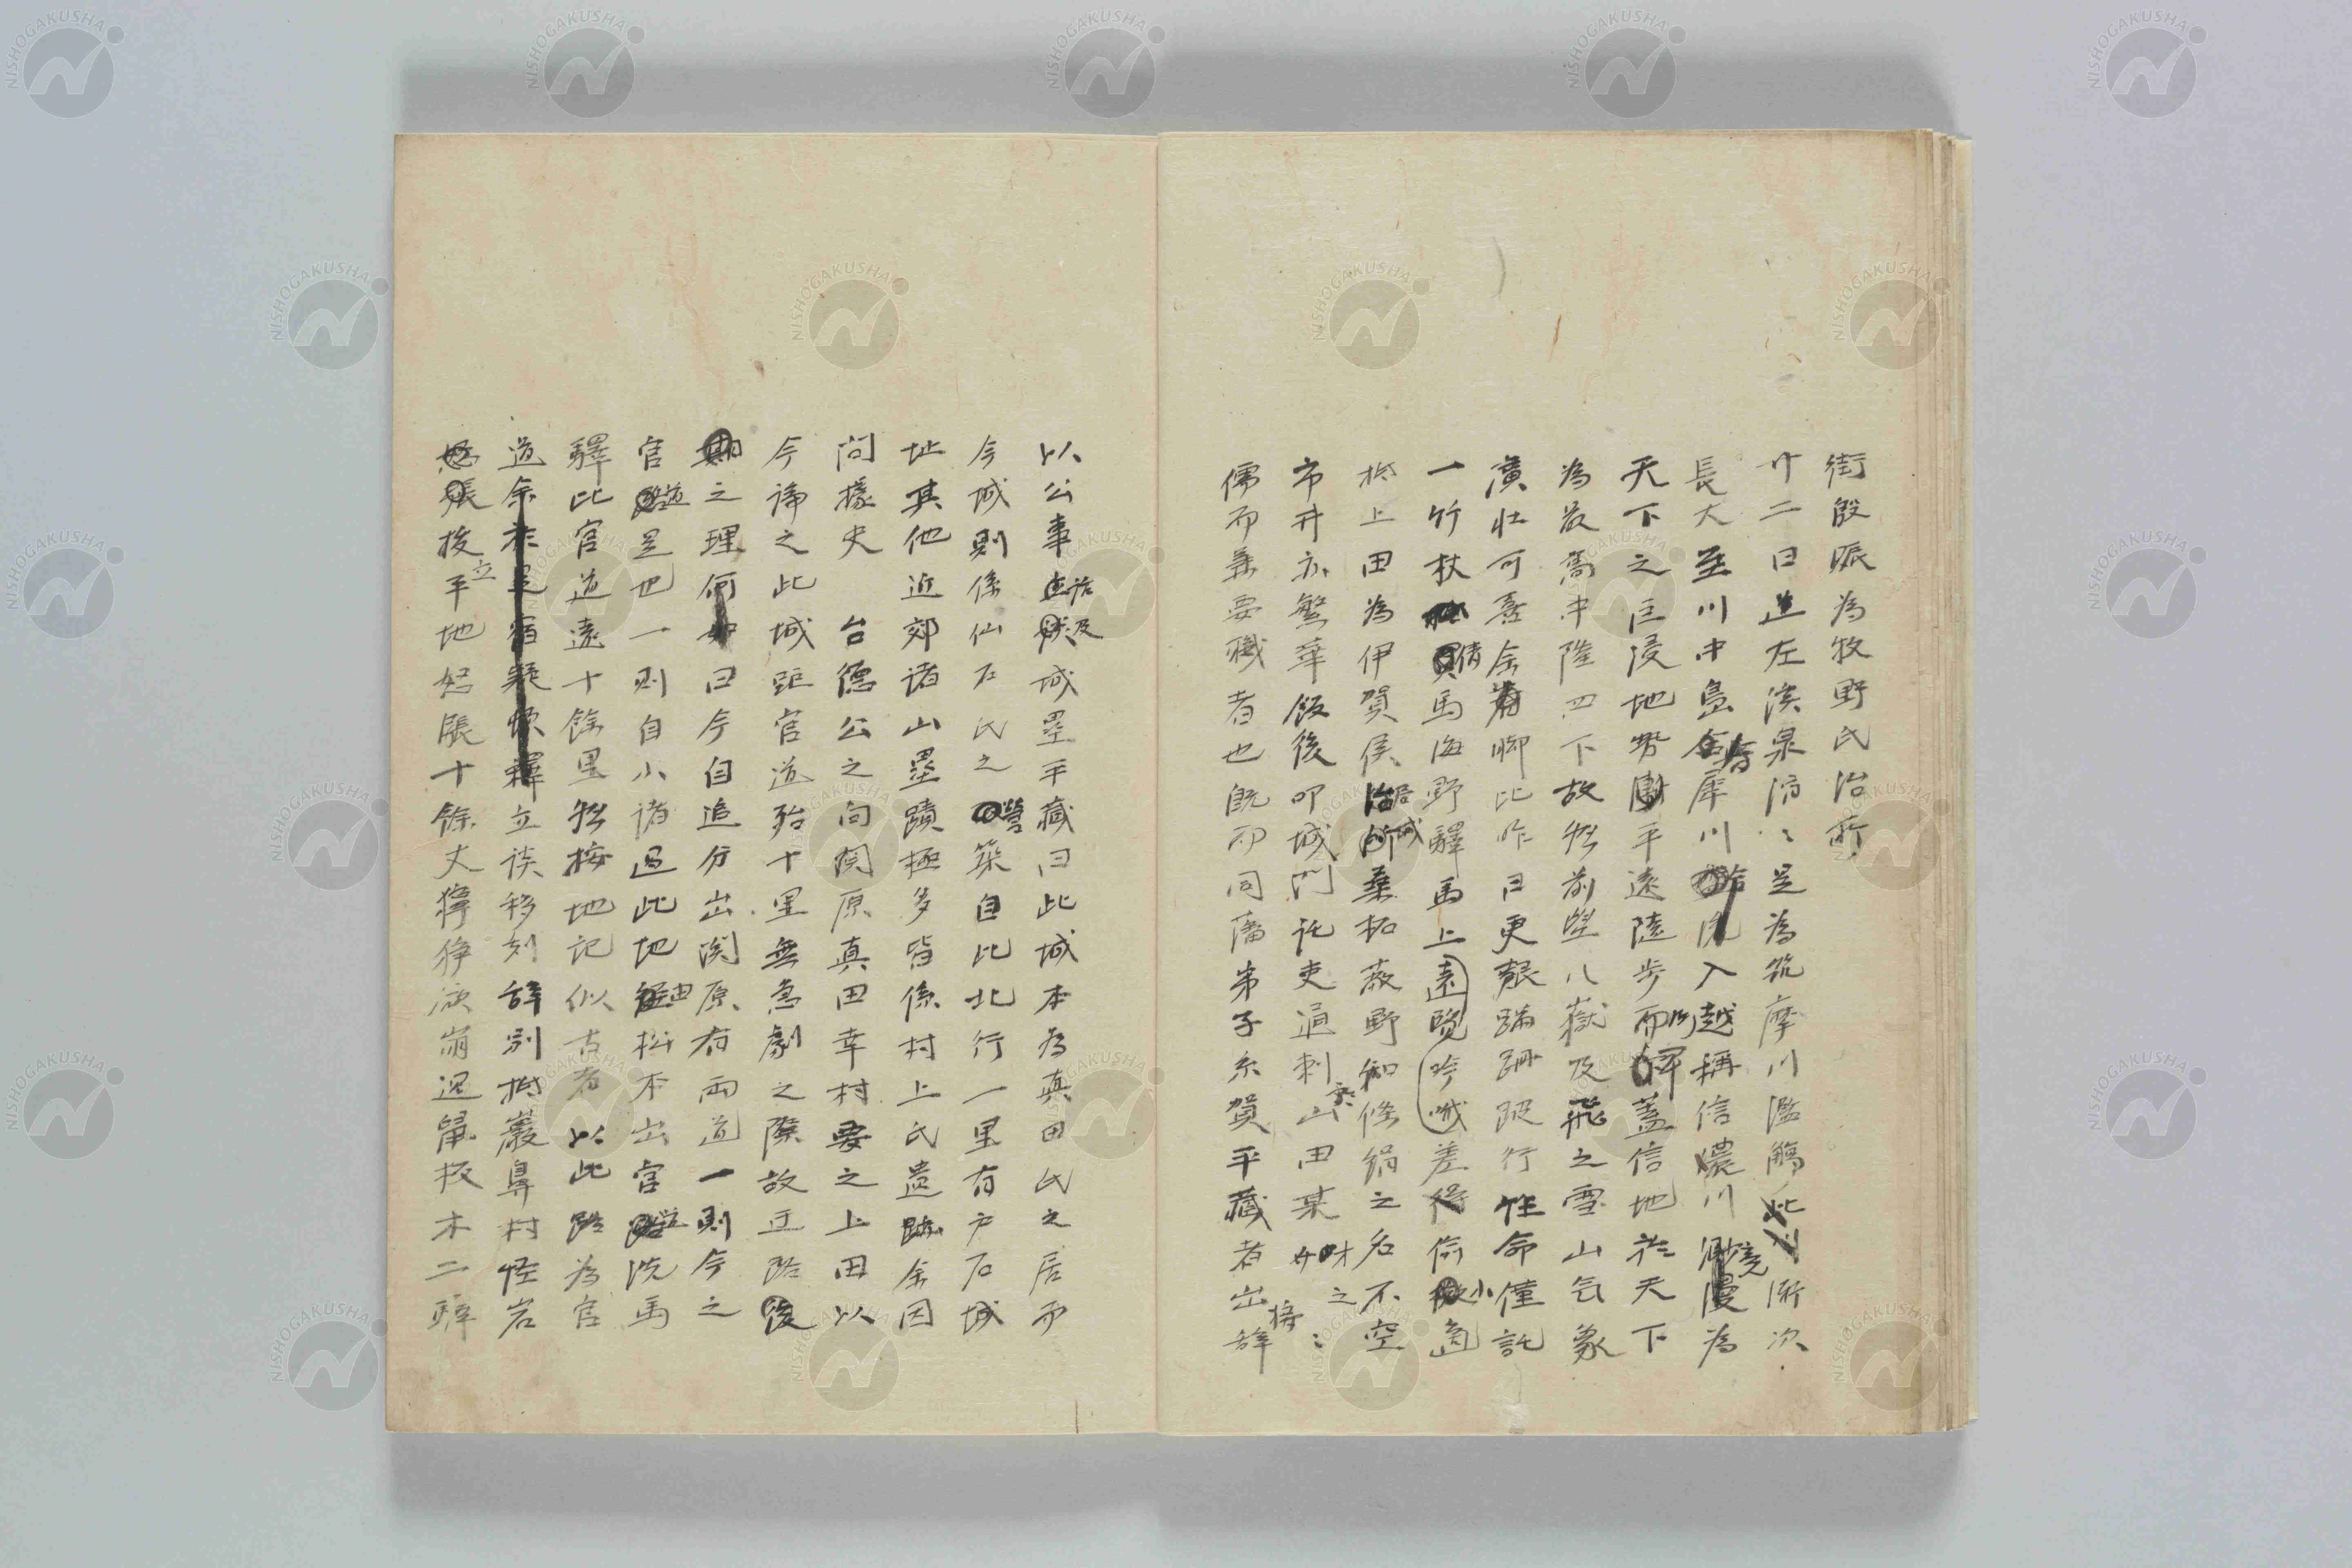 街殷賑為牧野氏治所
廿二日道左淡泉涓〻是為筑摩川濫觴漸次
長大至川中島合犀川入越稱信濃川瀰漫為
天下之巨浸地勢平遠陸步而蓋信地於天下
為最高中隆四下故能前望八嶽及飛之雪山气象
廣壮可喜余着脚比昨日更艱蹣跚蹤行性命僅託
一竹杖倩馬海野驛馬上遠覽吟哦差得偷小適
抵上田為伊賀侯居城桑柘蔽野知條絹之名不空
市井亦繁華飯後叩城門託吏通刺山田某
儒而兼要職者也既而同藩弟子糸賀平藏者出辞
以公事話及城壘平藏曰此城本為真田氏之居而
今城則係仙石氏之營築自此北行一里有戸石城
址其他近郊諸山壘蹟極多皆係村上氏遺跡余因
問據史 台德公之向関原真田幸村要之上田以
今論之此城距官道殆十里無急劇之際故迂路後
期之理何如曰今自追分出関原有両道一則今之
官道是也一則自小諸過此地由松本出官道洗馬
驛此官道遠十餘里然按地記似古者以此路為官
道余於是宿疑懷釋立談移刻辞別抵巖鼻村怪岩
拔立平地怒張十餘丈獰猙欲崩過鼠坂木二驛
NISHOGAKUSHA